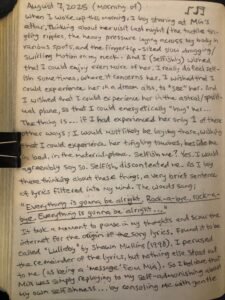 August 7, 2025 (morning of)
When I woke up this morning, I lay staring at Mia's
after, thinking about her visit last night (the tactile tin-
gling ripples, the heavy pressure laying across my body in
various spots, and the fingertip-sized slow dragging/
swirling motion on my neck. And I (selfishly) wished
that I could enjoy even more of her. I really do feel self-
ish sometimes, where it concerns her. I wished that I
could experience her in a dream also, to "see" her. And
I wished that I could experience her in the astral/spirit-
ual plane, so that I could energetically "hug" her...
The thing is... if I had experienced her only 1 of these
other ways; I would most likely be laying there, wishing
that I could experience her tingling touches, beside me
in bed, in the material-plane. Selfish me? Yes. I would
agreeably say so. Selfish, discontented me. As I lay
there thinking about these things, a very brief sentence
of lyrics filtered into my mind. The words sang;
"Everything is gonna be alright, Rock-a-bye, rock-a-
bye. Everything is gonna be alright..."
It took a moment to pause in my thoughts and scour the
internet for the origin of the song lyrics. Found it to be
called "Lullaby" by Shawn Mullins (1998). I perused
the remainder of the lyrics, but nothing else stood out
to me (as being a message, from Mia). So I believe that
Mia was simply replying to my self-admonishing about
my own selfishness... by consoling me with gentle